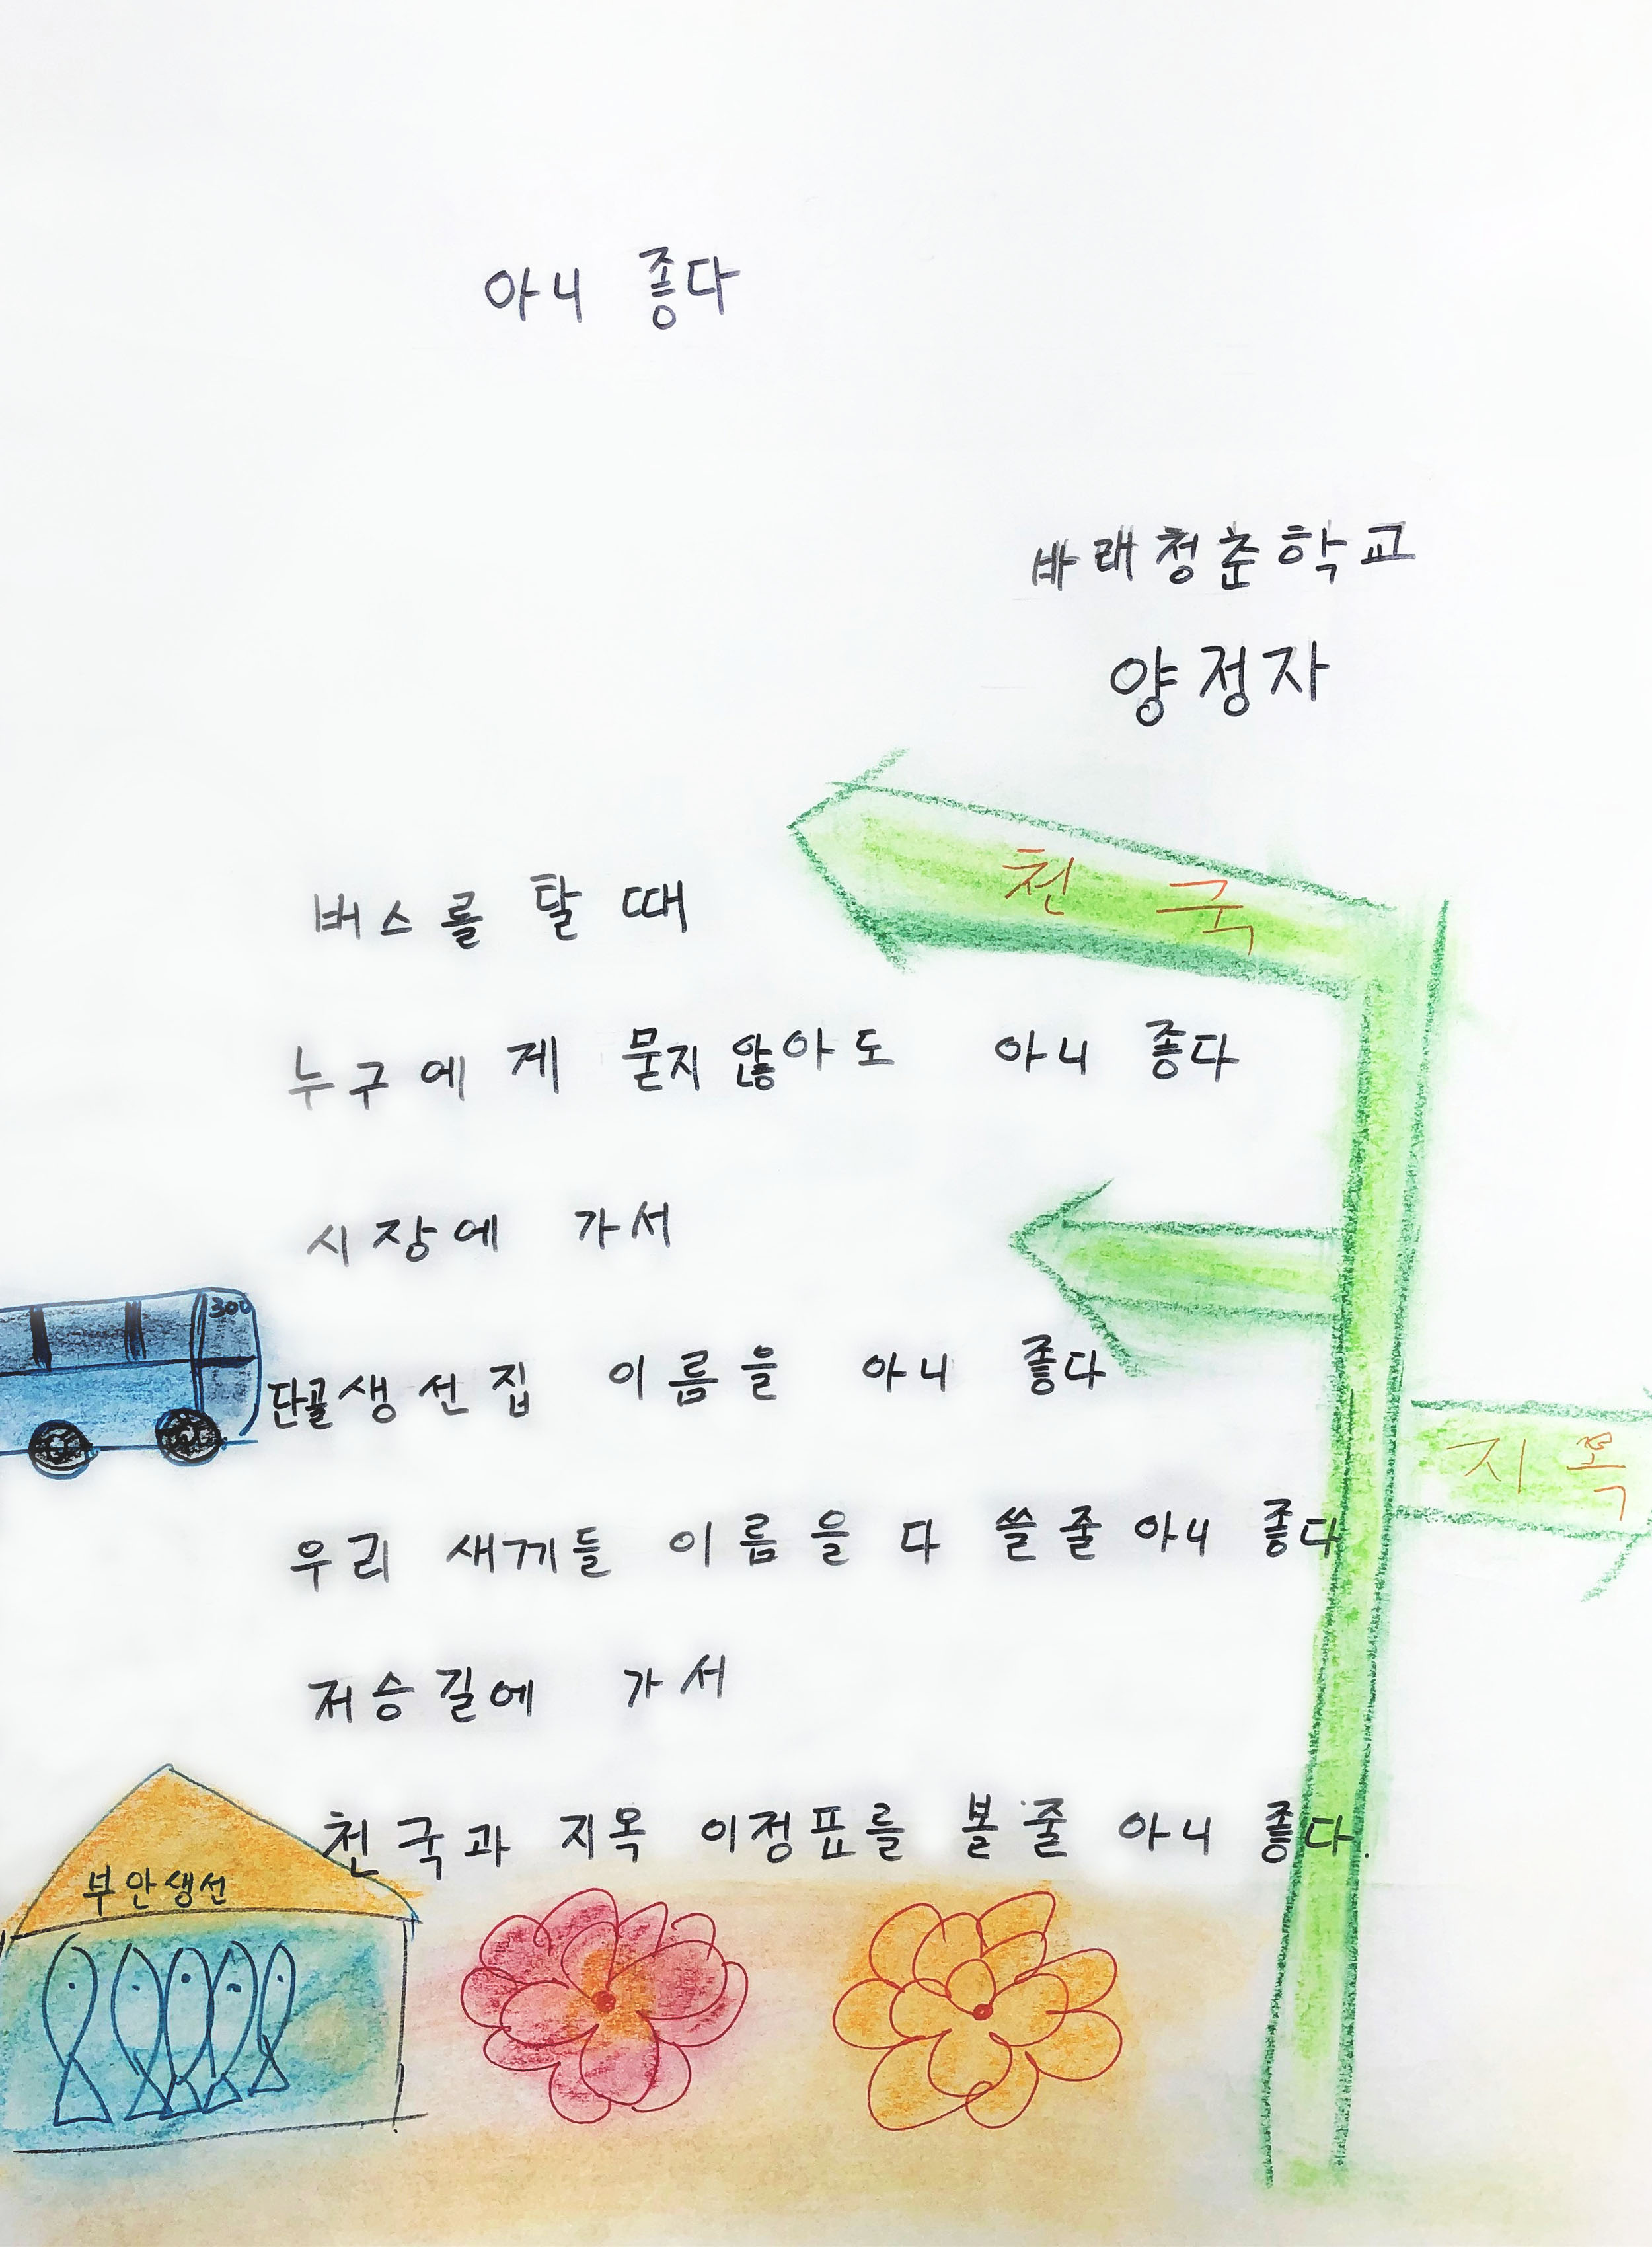 아니 좋다
바래청춘학교
양정자
천국
버스를 탈 때
누구에게 묻지않아도 아니 좋다
시장에 가서
300
단골생선집 이름을 아니 좋다
지옥
우리 새끼들 이름을 다 쓸줄 아니 좋다
저승길에 가서
천국과 지옥 이정표를 볼줄 아니 좋다.
부안생선